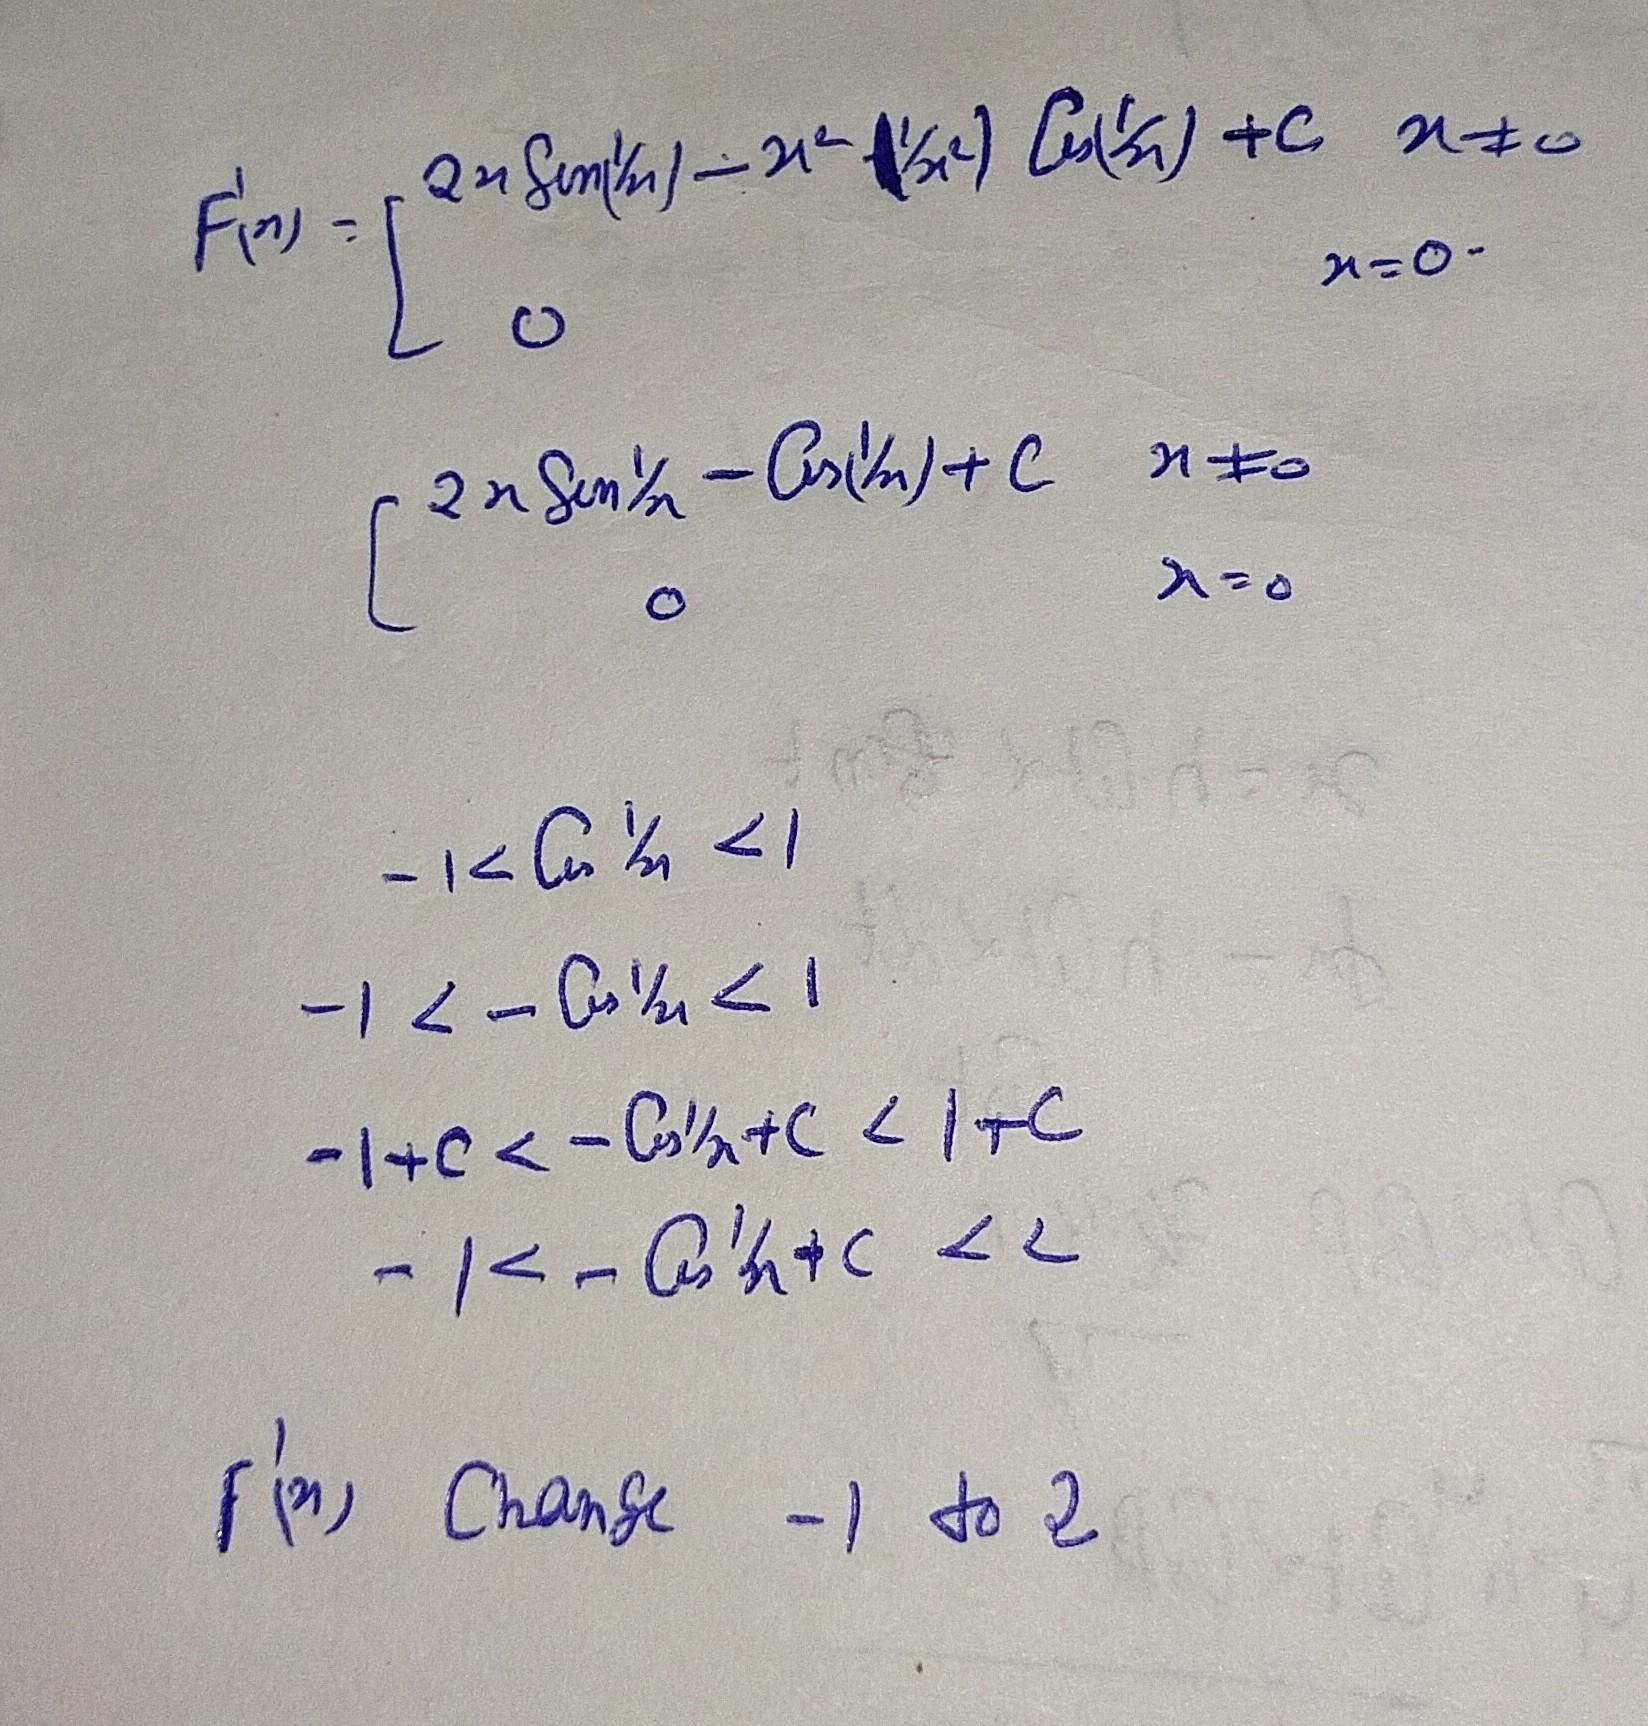 F'(x) = [ 2x Sin(1/x) - x² (1/x²) Cos(1/x) + C x ≠ 0
0 x = 0
[ 2x Sin 1/x - Cos(1/x) + C x ≠ 0
0 x = 0
-1 < Cos 1/x < 1
-1 < - Cos 1/x < 1
-1 + C < - Cos 1/x + C < 1 + C
-1 < - Cos 1/x + C < 2
F'(x) Change -1 to 2